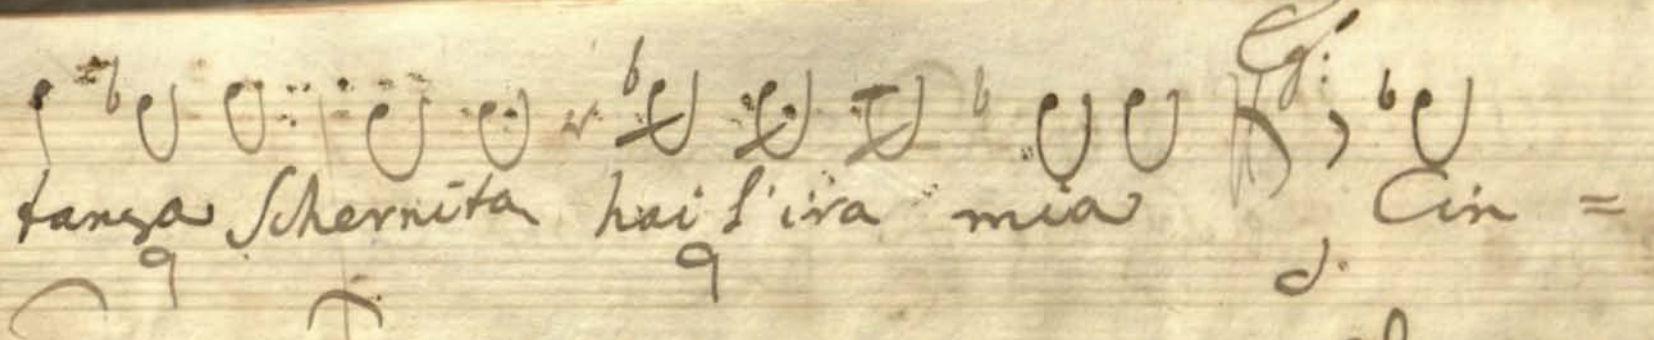 Eg:
tanza Schernita hai l'ira mia Cin =